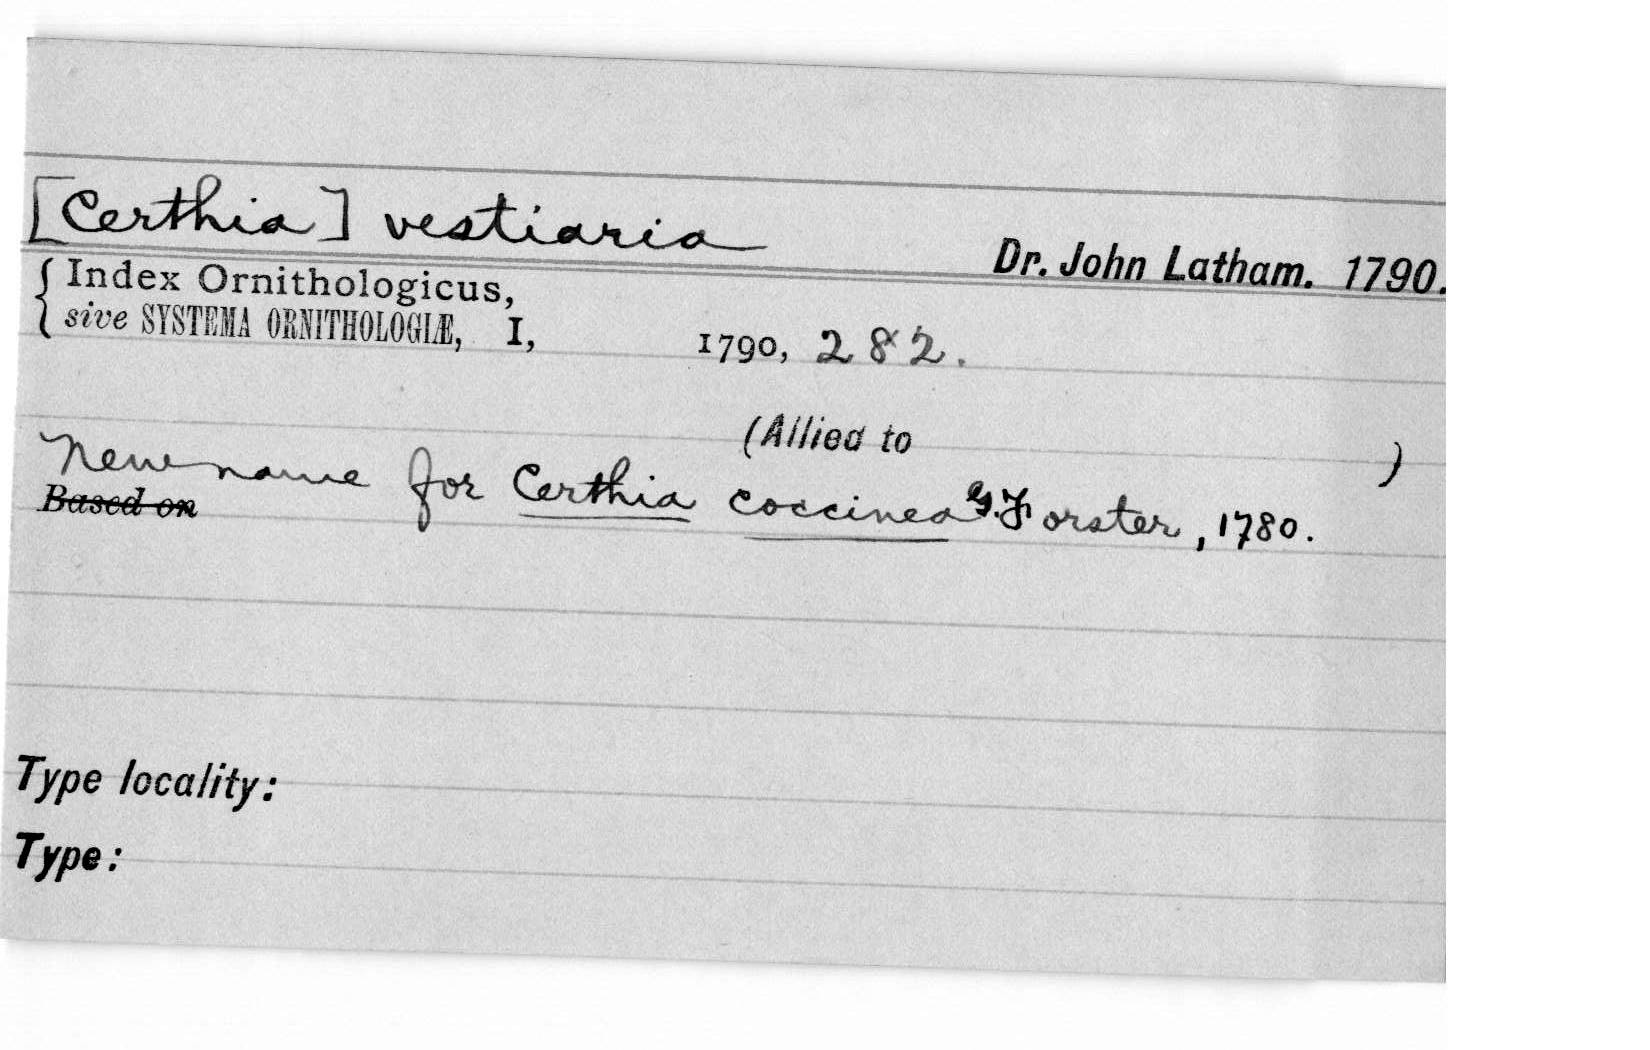 [Certhia] vestiaria Dr. John Latham. 1790.
{ Index Ornithologicus,
sive SYSTEMA ORNITHOLOGIÆ, I, 1790, 282.
(Allied to )
New name for Certhia coccinea G. Forster, 1780.
Based on
Type locality:
Type: